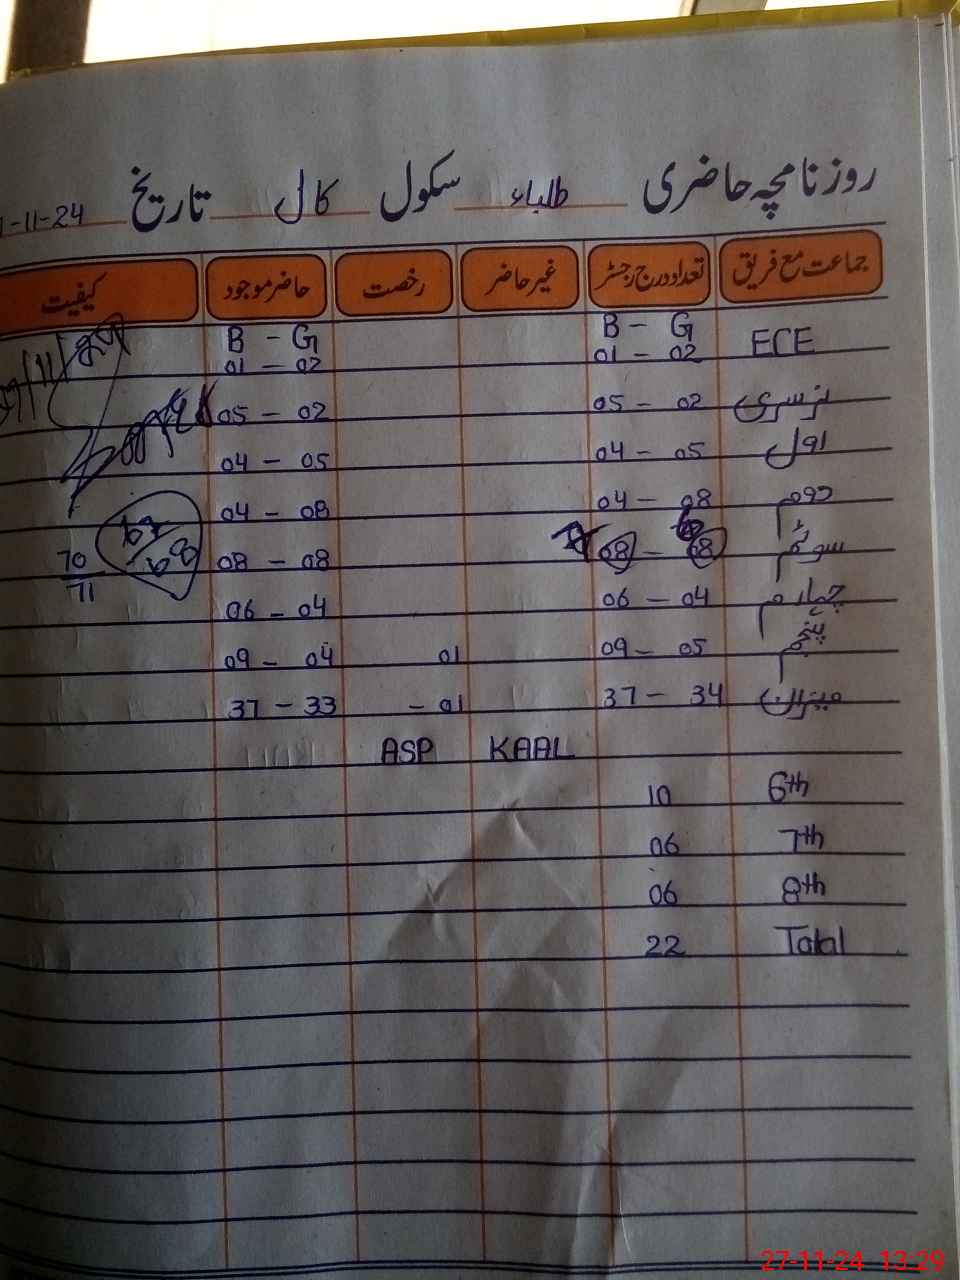 روزنامچہ حاضری طلباء سکول کال تاریخ -11-24
جماعت مع فریق تعداد درج رجسٹر غیر حاضر رخصت حاضر موجود کیفیت
ECE B - G B - G
01 - 02 01 - 02
نرسری 05 - 02 05 - 02
اول 04 - 05 04 - 05
دوم 04 - 08 04 - 08
سوئم 08 - 08 08 - 08 70
71
چہارم 06 - 04 06 - 04
پنجم 09 - 05 01 09 - 04
میزان 37 - 34 - 01 37 - 33
ASP KAAL
6th 10
7th 06
8th 06
Total 22
27-11-24 13:29